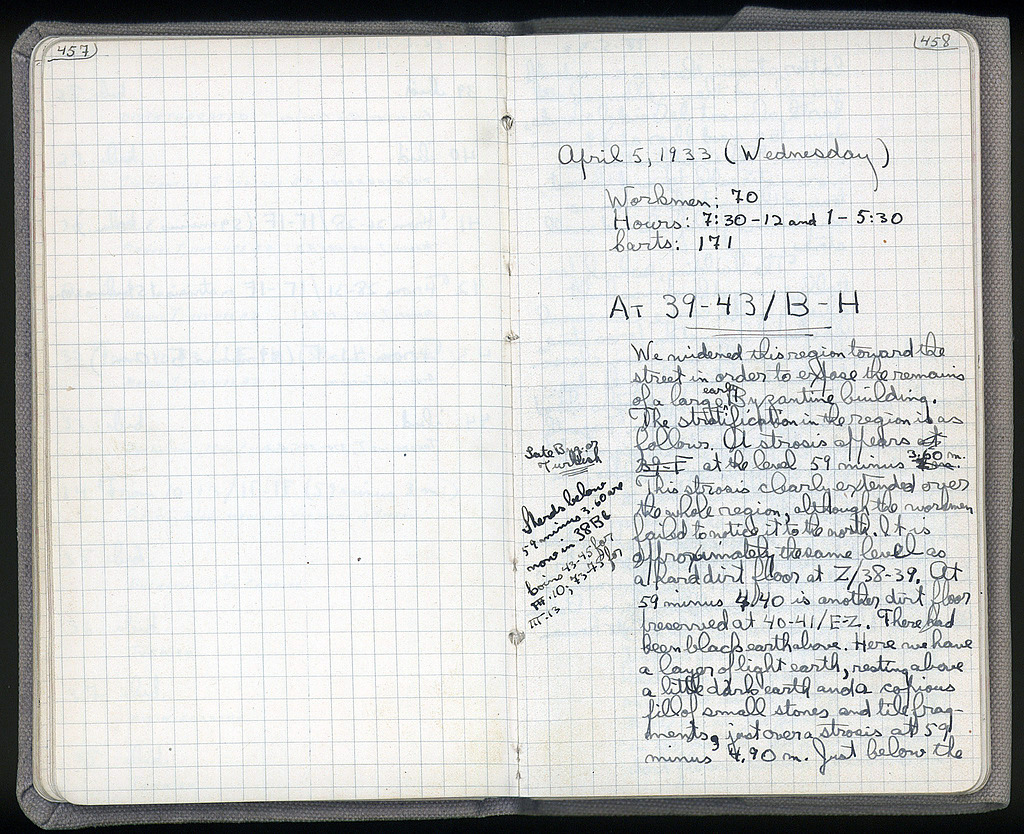 457
458
April 5, 1933 (Wednesday)
Workmen: 70
Hours: 7:30-12 and 1-5:30
Carts: 171
At 39-43/B-H
We widened this region toward the
street in order to expose the remains
of a large early Byzantine building.
The stratification in the region is as
follows. A strosis appears at
39-F at the level 59 minus 3.60 m.
This strosis clearly extended over
the whole region, although the workmen
failed to notice it to the north. It is
approximately the same level as
a hard dirt floor at Z/38-39. At
59 minus 4.40 is another dirt floor
preserved at 40-41/E-Z. There had
been black earth above. Here we have
a layer of light earth, resting above
a little dark earth and a copious
fill of small stones and tile frag-
ments, just over a strosis at 59
minus 4.90 m. Just below the
Late Byz. or
Turkish
Sherds below
59 minus 3.60 are
now in 38 B
coins 43-45 for
III.10; 73-75 for
III.13